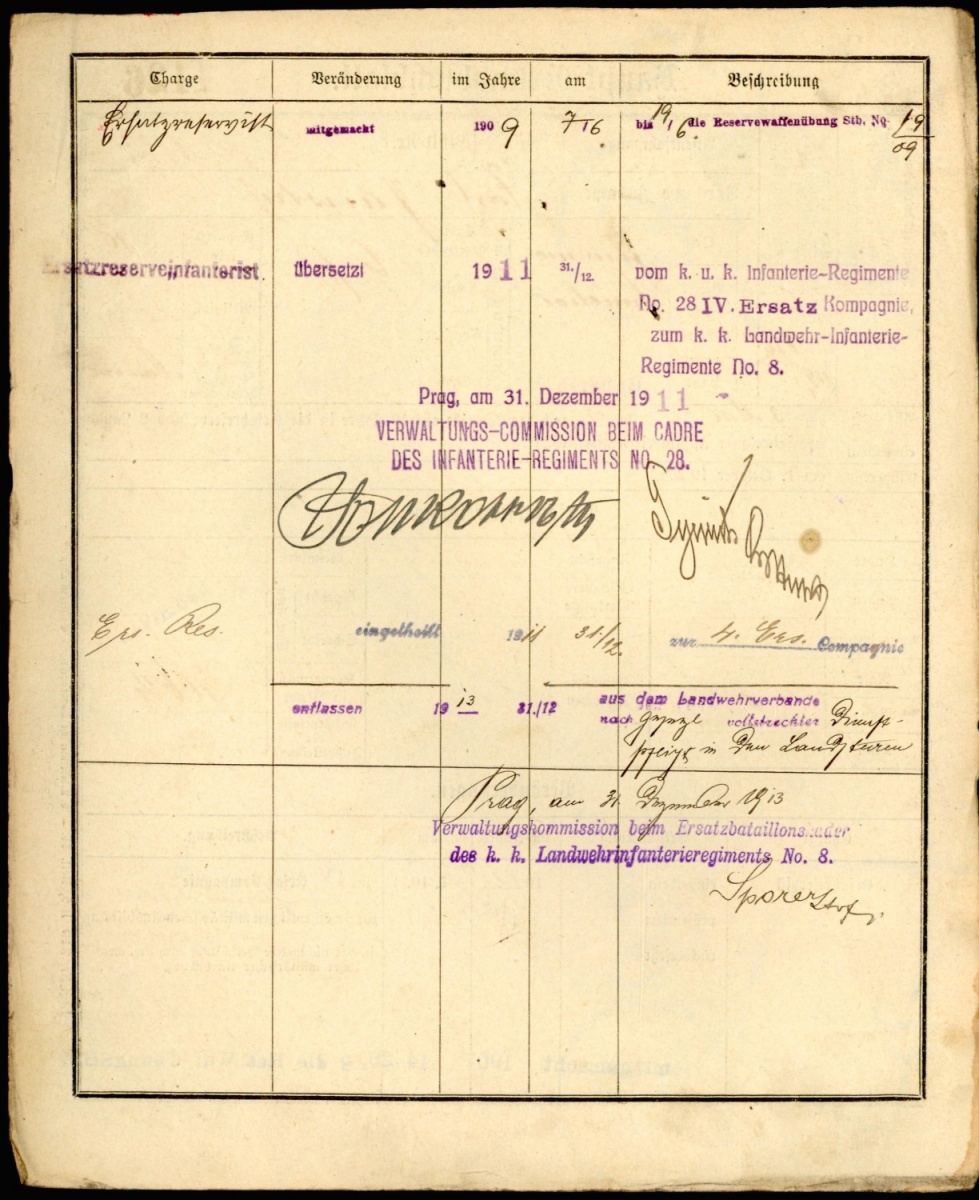 Charge Veränderung im Jahre am Beschreibung
Ersatzreservist mitgemacht 1909 7/6 bis 19/6. die Reservewaffenübung Stb. No 19/09
Ersatzreserveinfanterist. übersetzt 1911 31./12. vom k. u. k. Infanterie-Regimente
No. 28 IV. Ersatz Kompagnie,
zum k. k. Landwehr-Infanterie-
Regimente No. 8.
Prag, am 31. Dezember 1911
VERWALTUNGS-COMMISSION BEIM CADRE
DES INFANTERIE-REGIMENTS NO. 28.
Ers. Res. eingetheilt 1911 31./12. zur 4. Ers. Compagnie
entlassen 1913 31./12 aus dem Landwehrverbande
nach gesetzl vollstreckter Dienst-
pflicht in den Landsturm
Prag, am 31. Dezember 1913
Verwaltungskommission beim Ersatzbataillonskader
des k. k. Landwehrinfanterieregiments No. 8.
Sporer